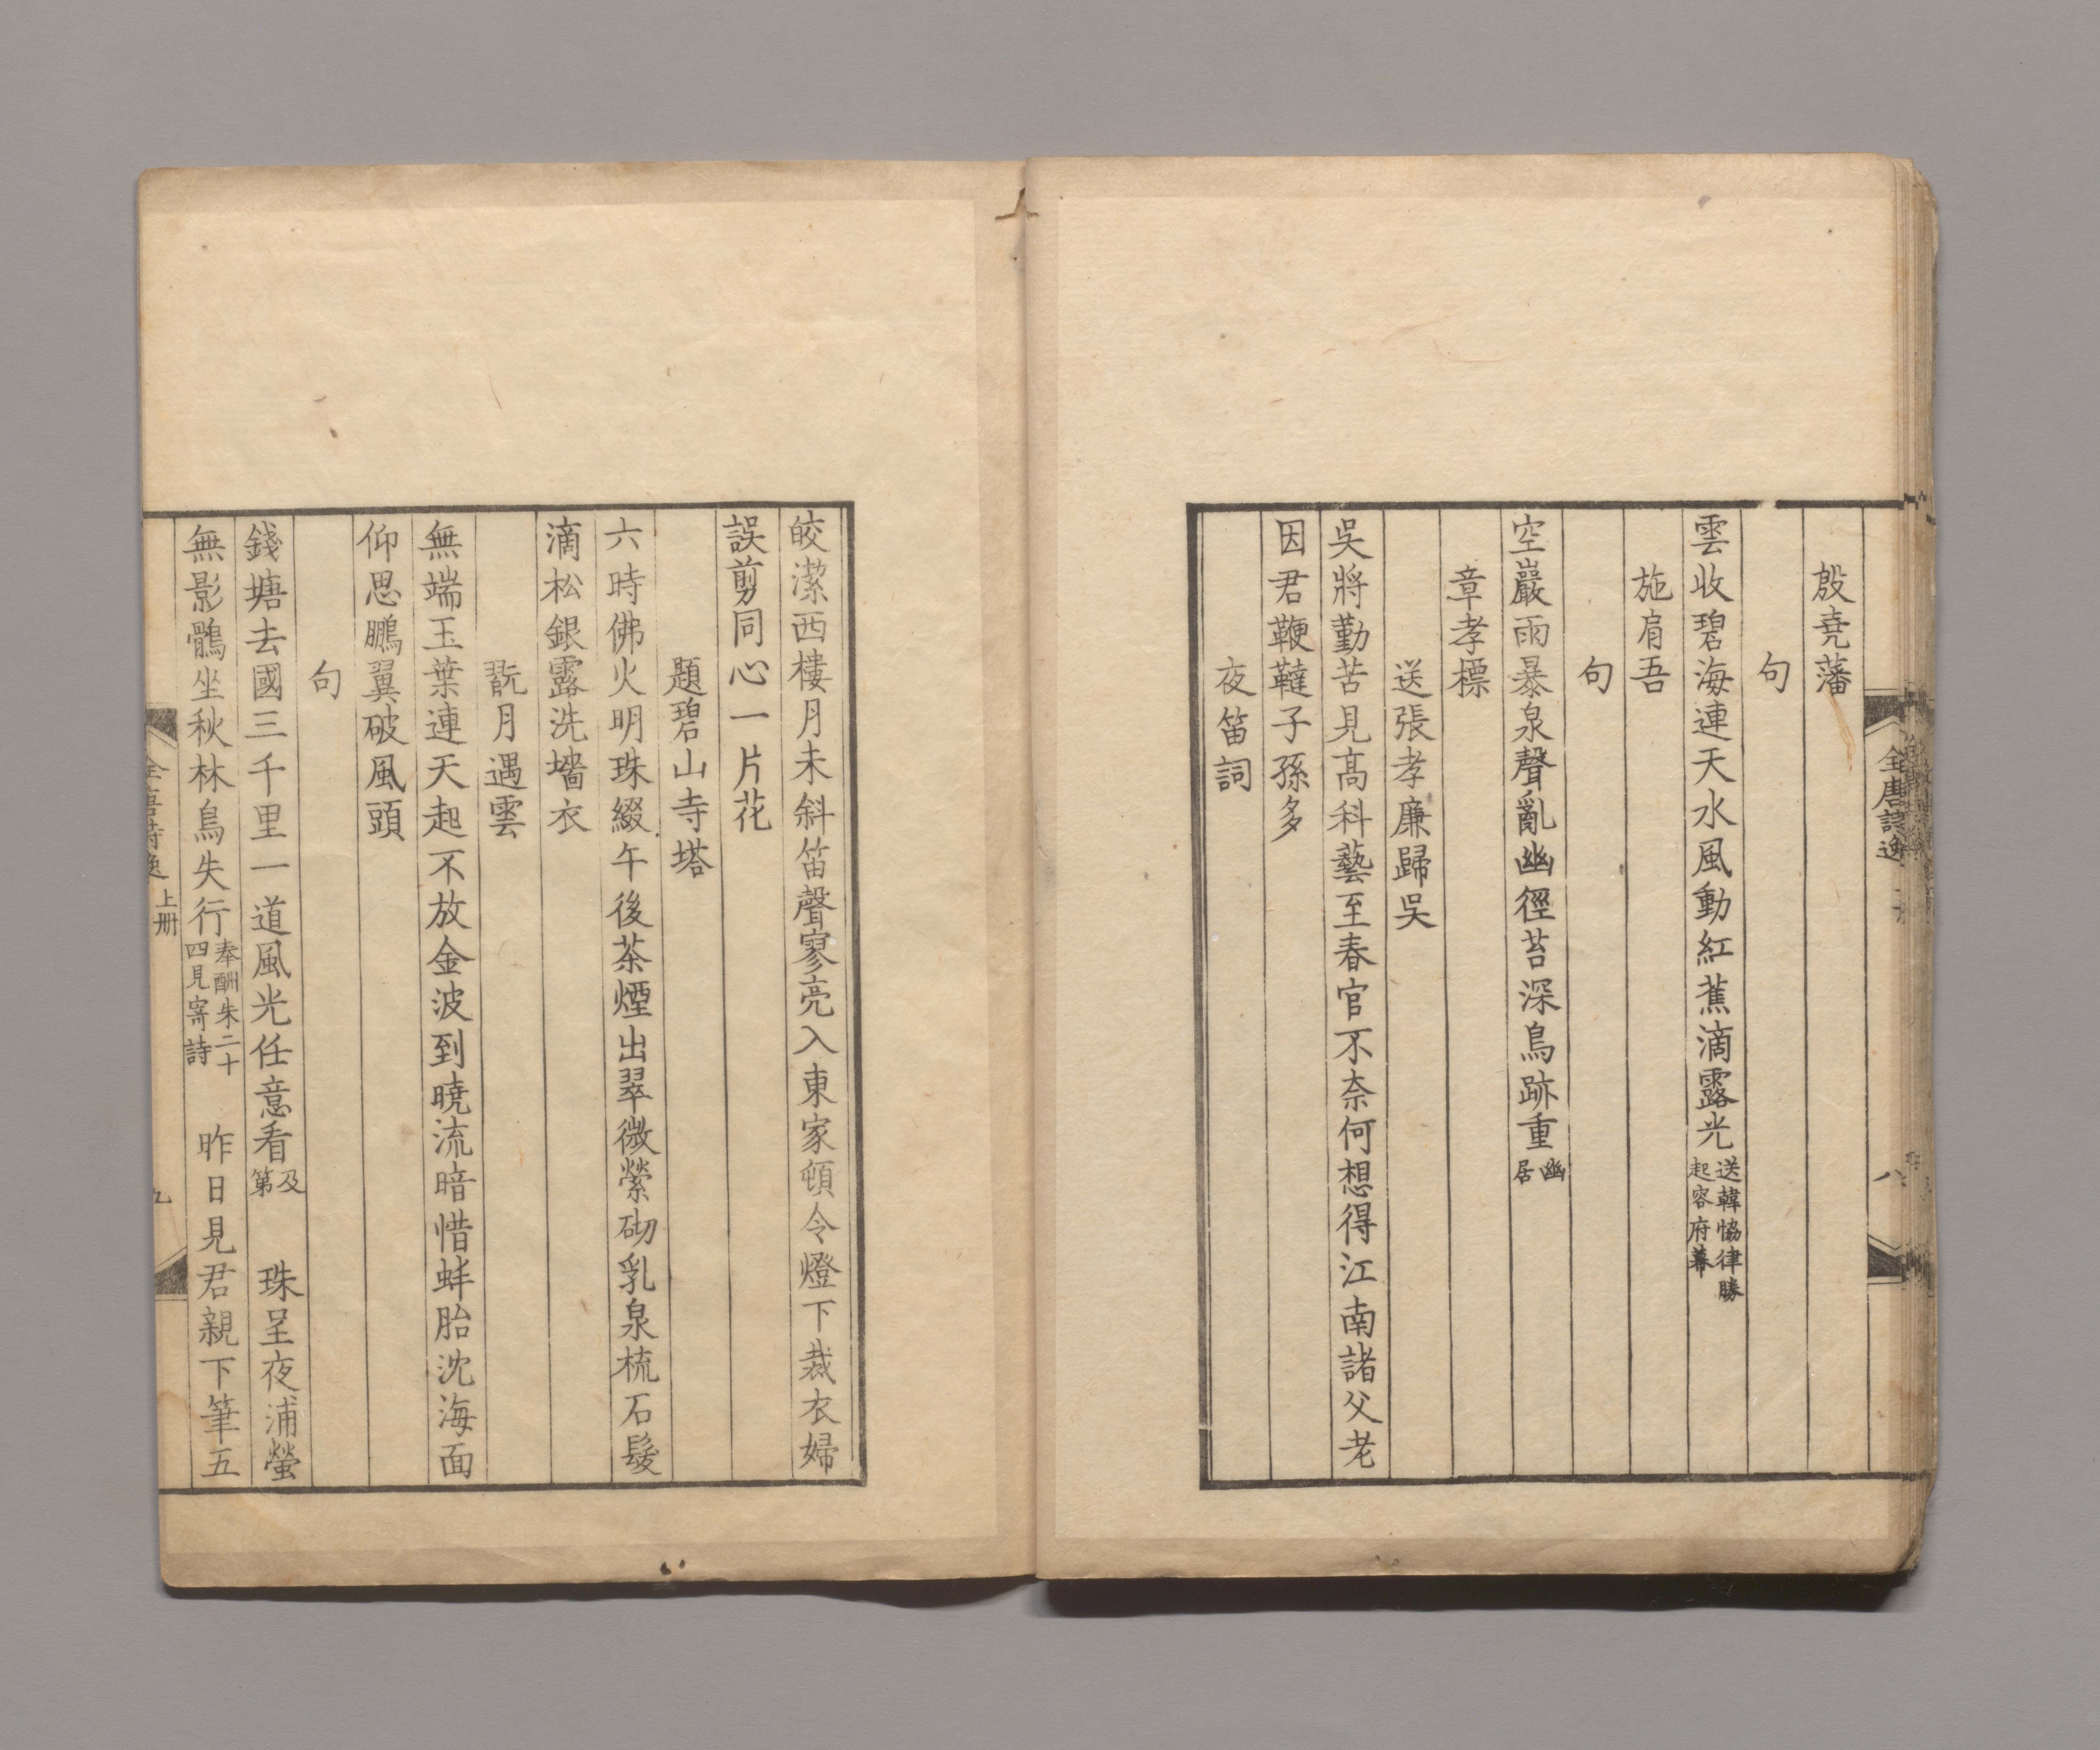 殷堯藩
句
雲收碧海連天水風動紅蕉滴露光送韓恊律勝起容府幕
施肩吾
句
空巖雨暴泉聲亂幽徑苔深鳥跡重幽居
章孝標
送張孝廉歸吳
吳將勤苦見高科藝至春官不奈何想得江南諸父老
因君鞭韃子孫多
夜笛詞
皎潔西樓月未斜笛聲寥亮入東家頓令燈下裁衣婦
誤剪同心一片花
題碧山寺塔
六時佛火明珠綴午後茶煙出翠微縈砌乳泉梳石髮
滴松銀露洗墻衣
翫月遇雲
無端玉葉連天起不放金波到曉流暗惜蚌胎沈海面
仰思鵬翼破風頭
句
錢塘去國三千里一道風光任意看及第 珠呈夜浦螢
無影鶻坐秋林鳥失行奉酬朱二十四見寄詩 昨日見君親下筆五
全唐詩逸
八
全唐詩逸 上册
九